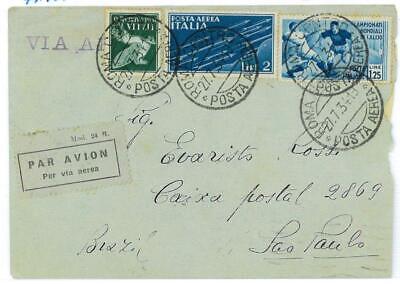 VIA
POSTA AEREA
ITALIA
LIRE 2
CAMPIONATI
MONDIALI
DI CALCIO
LIRE 1,25
ROMA
POSTA AEREA
ROMA
POSTA AEREA
ROMA
POSTA AEREA
Mod. 24 H.
PAR AVION
Per via aerea
Sig.
Evaristo Rossi
Caixa postal 2869
Brazil
Sao Paulo